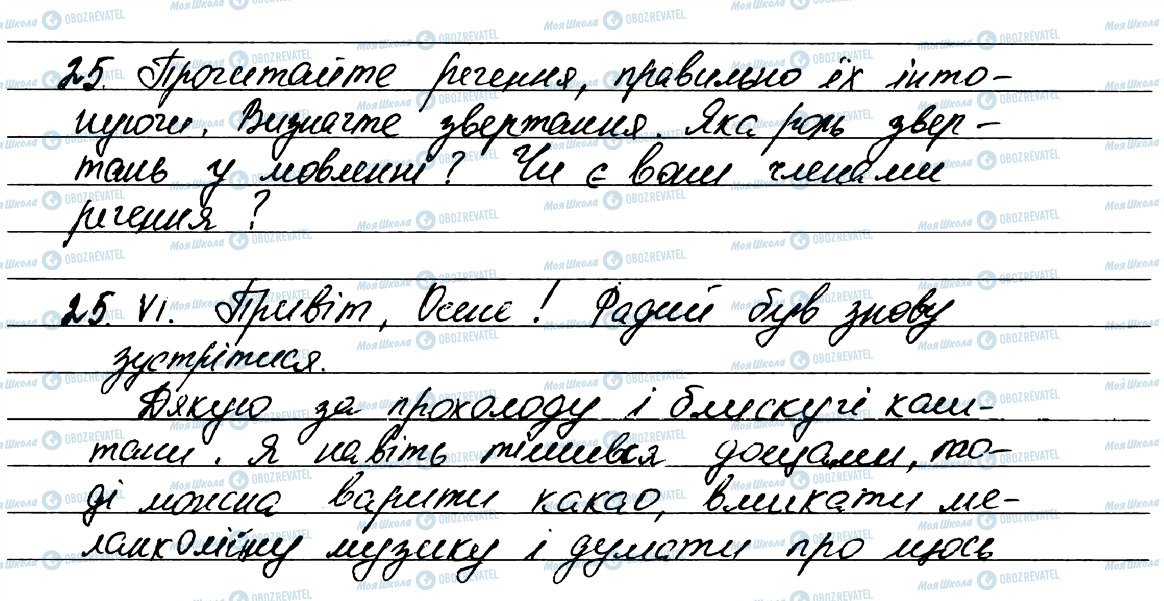 25. Прочитайте речення, правильно їх інто-
нуючи. Визначте звертання. Яка роль звер-
тань у мовленні? Чи є вони членами
речення?
25. VI. Привіт, Осене! Радий був знову
зустрітися.
Дякую за прохолоду і блискучі каш-
тани. Я навіть тішився дощами, то-
ді можна варити какао, вмикати ме-
ланхолійну музику і думати про щось